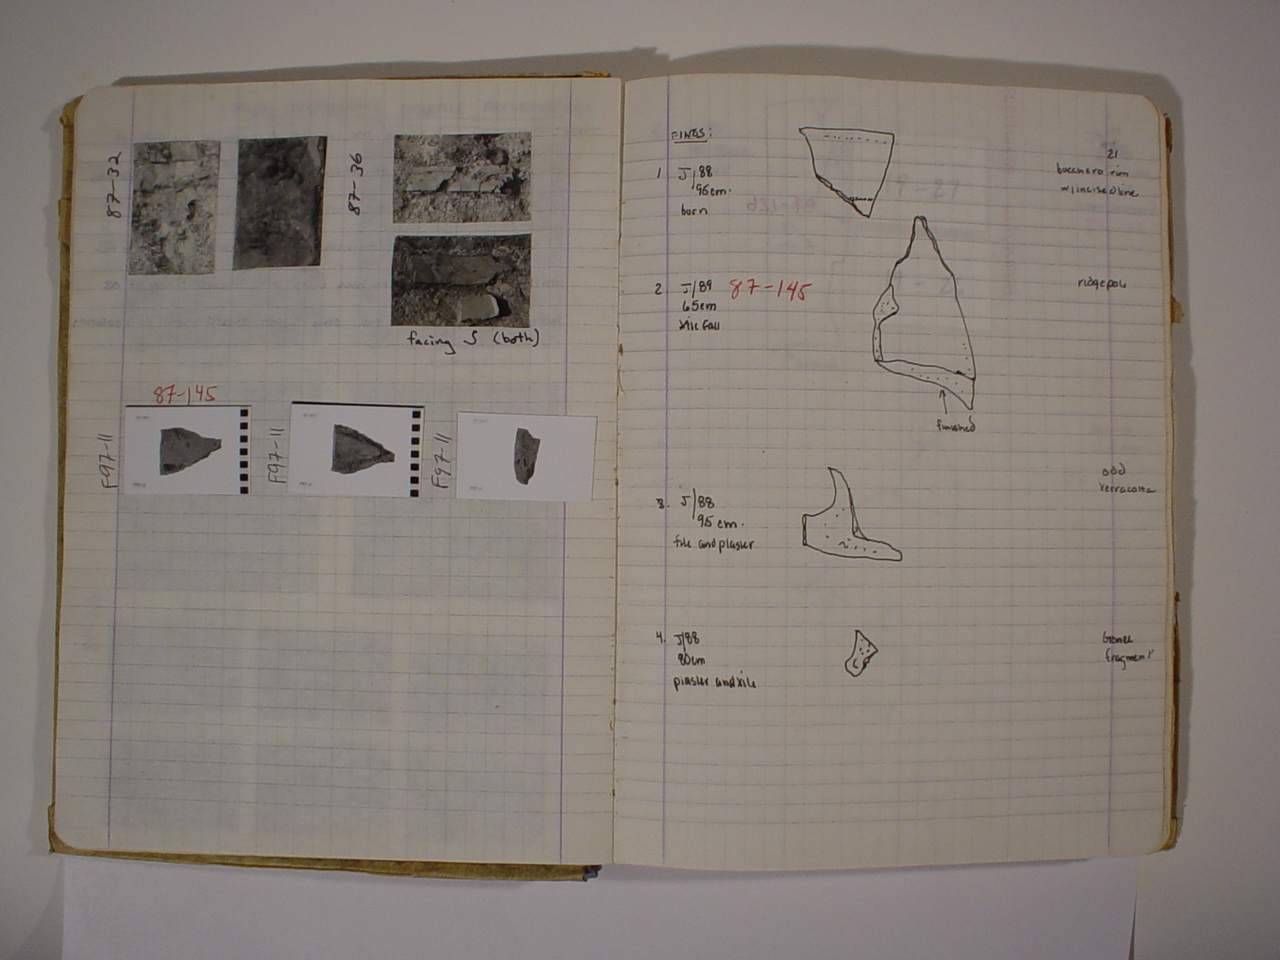 87-32
87-36
facing S (both)
87-145
F97-11
F97-11
F97-11
21
FINDS:
1 J/88
95cm.
burn
bucchero rim
w/incised line
2 J/89 87-145
65cm
tile fall
ridgepole
finished
3. J/88
95 cm.
tile and plaster
odd
terracotta
4. J/88
80cm
plaster and tile
bronze
fragment